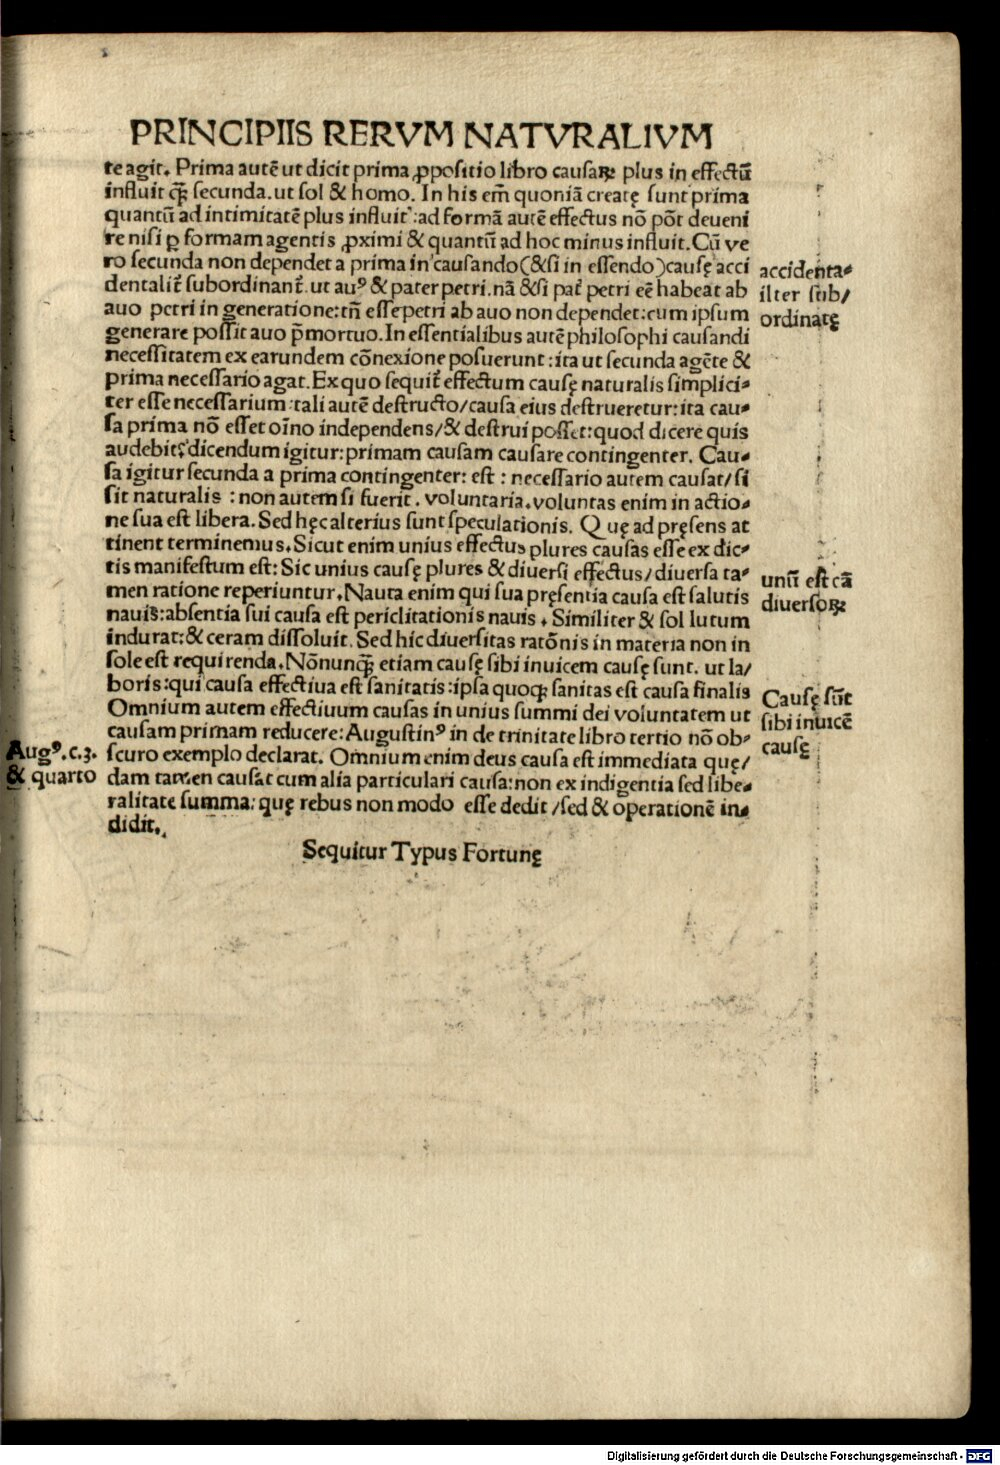 PRINCIPIIS RERVM NATVRALIVM
te agit. Prima autē ut dicit prima ꝓpositio libro causaꝝ plus in effectū
influit ꝗ̄ secunda. ut sol & homo. In his em̄ quoniā creatę sunt prima
quantū ad intimitatē plus influit: ad formā autē effectus nō pōt deueni
re nisi ꝑ formam agentis ꝓximi & quantū ad hoc minus influit. Cū ve
ro secunda non dependet a prima in causando (& si in essendo) causę acci
dentalit᷑ subordinant᷑. ut auꝰ & pater petri. nā & si pat᷑ petri eē habeat ab
auo petri in generatione: tn̄ esse petri ab auo non dependet: cum ipsum
generare possit auo p̄mortuo. In essentialibus autē philosophi causandi
necessitatem ex earundem cōnexione posuerunt: ita ut secunda agēte &
prima necessario agat. Ex quo sequit᷑ effectum causę naturalis simplici-
ter esse necessarium: tali autē destructo/ causa eius destrueretur: ita cau-
sa prima nō esset oīno independens/ & destrui posset: quod dicere quis
audebit? dicendum igitur: primam causam causare contingenter. Cau-
sa igitur secunda a prima contingenter: est: necessario autem causat/ si
sit naturalis: non autem si fuerit. voluntaria. voluntas enim in actio-
ne sua est libera. Sed hęc alterius sunt speculationis. Quę ad pręsens at
tinent terminemus. Sicut enim unius effectus plures causas esse ex dic-
tis manifestum est: Sic unius causę plures & diuersi effectus/ diuersa ta-
men ratione reperiuntur. Nauta enim qui sua pręsentia causa est salutis
nauis: absentia sui causa est periclitationis nauis. Similiter & sol lutum
indurat: & ceram dissoluit. Sed hic diuersitas ratōnis in materia non in
sole est requirenda. Nōnunꝗ̄ etiam causę sibi inuicem causę sunt. ut la/
boris: qui causa effectiua est sanitatis: ipsa quoqꝫ sanitas est causa finalis
Omnium autem effectiuum causas in unius summi dei voluntatem ut
causam primam reducere: Augustinꝰ in de trinitate libro tertio nō ob-
scuro exemplo declarat. Omnium enim deus causa est immediata quę/
dam tamen causat cum alia particulari causa: non ex indigentia sed libe-
ralitate summa: quę rebus non modo esse dedit/ sed & operationē in-
didit.
Sequitur Typus Fortunę
accidenta-
liter sub/
ordinatę
unū est cā
diuersoꝝ
Causę sūt
sibi inuicē
causę
Augꝰ. c. 3.
& quarto
Digitalisierung gefördert durch die Deutsche Forschungsgemeinschaft - DFG